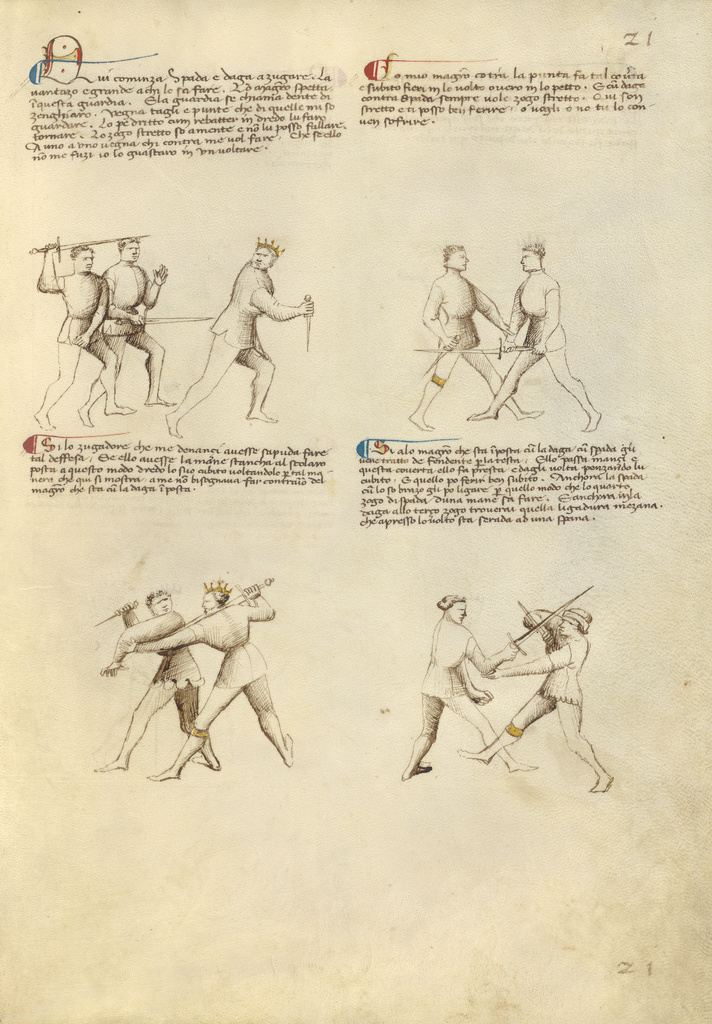 21
Qui cominza Spada e daga a zugare. La
vantazo e grande a chi lo sa fare. Lo magistro spetta
in questa guardia. E la guardia se chiama dente di
zenghiaro. Vegna tagli e punte che di quelle mi so
guardare. Lo pe dritto cum rebatter in dredo lu faro
tornare. Lo zogo stretto so a mente e non lu posso fallare.
A uno a uno vegna chi contra me vol fare. Che se ello
no me fuzi io lo guastaro in un voltare.
Elo mio magistro contra la punta fa tal coverta
e subito fieri in lo volto overo in lo petto. E cum daga
contra spada sempre vole zogo stretto. Qui son
stretto e ti posso ben ferire, o vogli o no tu lo con-
ven sofrire.
Si lo zugadore che me denanci avesse saputa fare
tal deffesa, Se ello avesse la mane stancha al scolaro
posta a questo modo dredo lo suo cubito voltandolo per tal ma-
nera che qui si mostra, a me non bisognava far contrario del
magistro che sta cum la daga in posta.
Si a lo magistro che sta in posta cum la daga cum spada gli
vene tratto de fendente per la testa, Ello passa inanci e
questa coverta ello fa presta, e dagli volta penzando lu
cubito, E quello po ferir ben subito. Anchora la spada
cum lo so brazo gli po ligare per quello modo che lo quarto
zogo di spada d'una mane sa fare. E anchora in la
daga allo terzo zogo troverai quella ligadura mezana.
che apresso lo volto sta serada ad una spana.
21